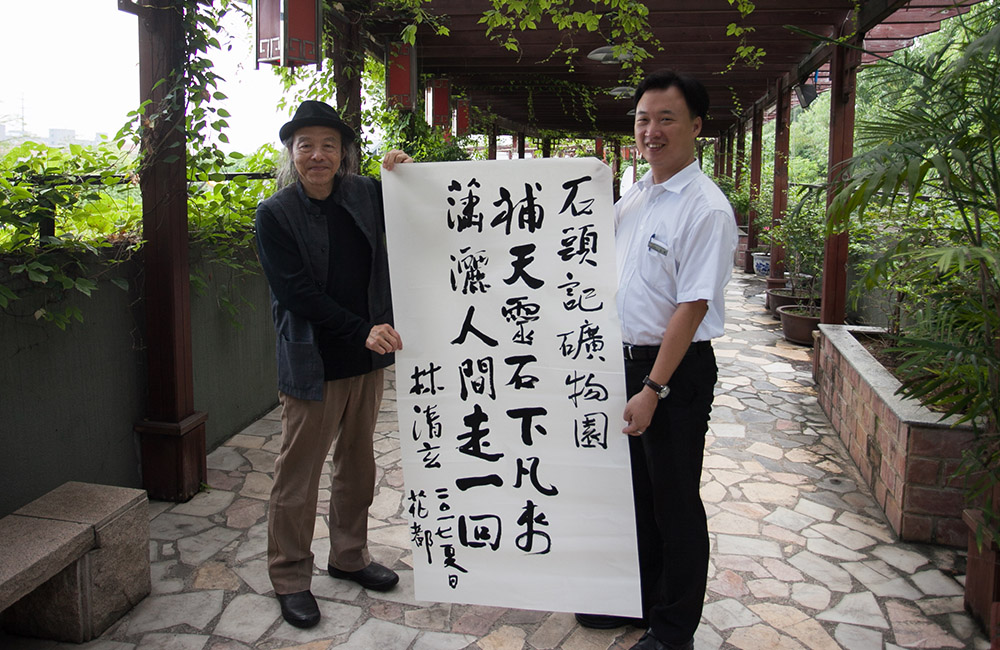 石頭記礦物園
補天靈石下凡來
瀟灑人間走一回
林清玄
二〇一七夏日
花都